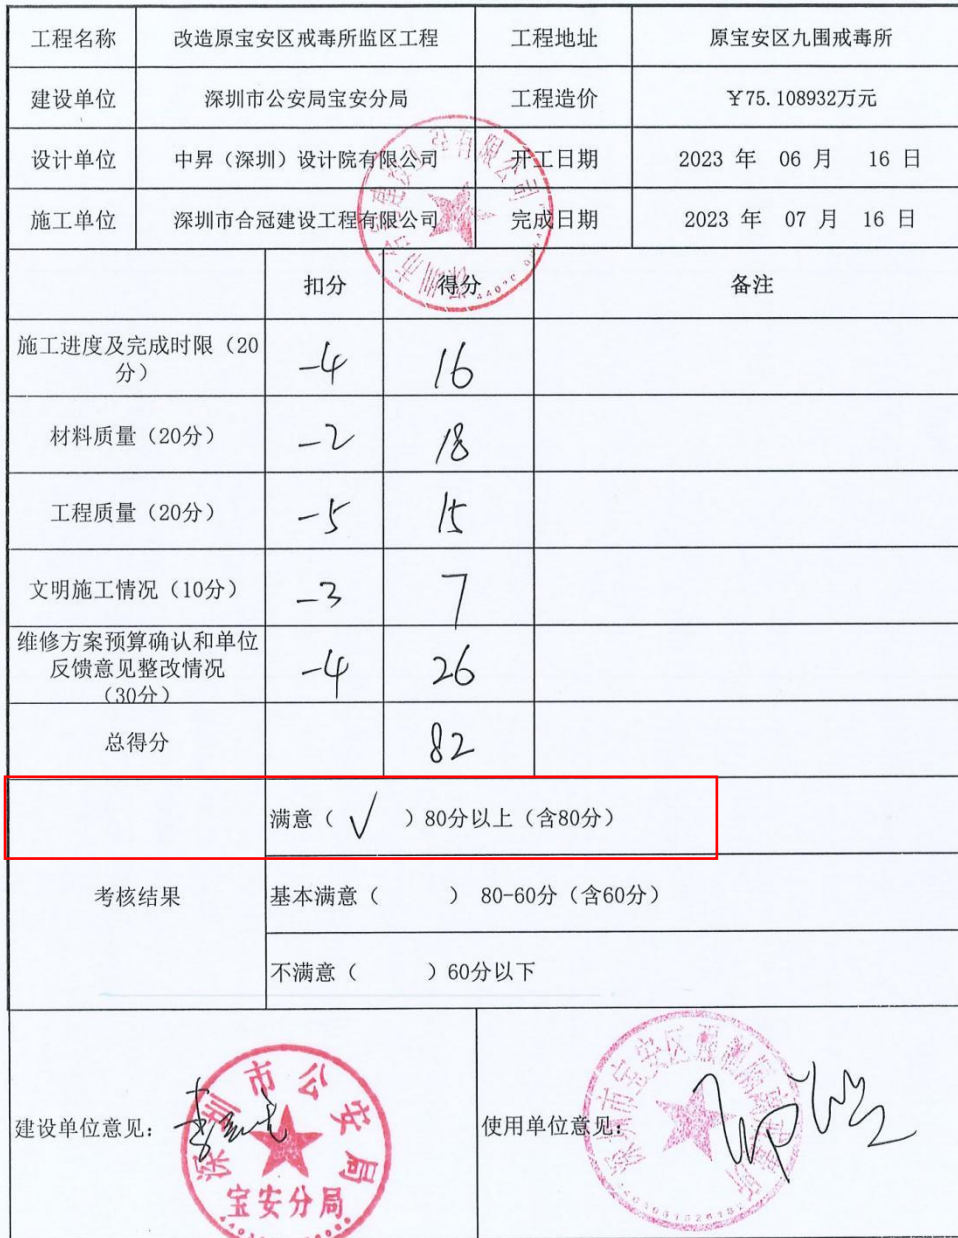 工程名称 改造原宝安区戒毒所监区工程 工程地址 原宝安区九围戒毒所
建设单位 深圳市公安局宝安分局 工程造价 ¥75.108932万元
设计单位 中昇（深圳）设计院有限公司 开工日期 2023 年 06 月 16 日
施工单位 深圳市合冠建设工程有限公司 完成日期 2023 年 07 月 16 日
扣分 得分 备注
施工进度及完成时限（20
分） -4 16
材料质量（20分） -2 18
工程质量（20分） -5 15
文明施工情况（10分） -3 7
维修方案预算确认和单位
反馈意见整改情况 -4 26
（30分）
总得分 82
满意（ √ ）80分以上（含80分）
考核结果 基本满意（ ） 80-60分（含60分）
不满意（ ）60分以下
建设单位意见： 使用单位意见：
深圳市公安局
宝安分局
深圳市宝安区